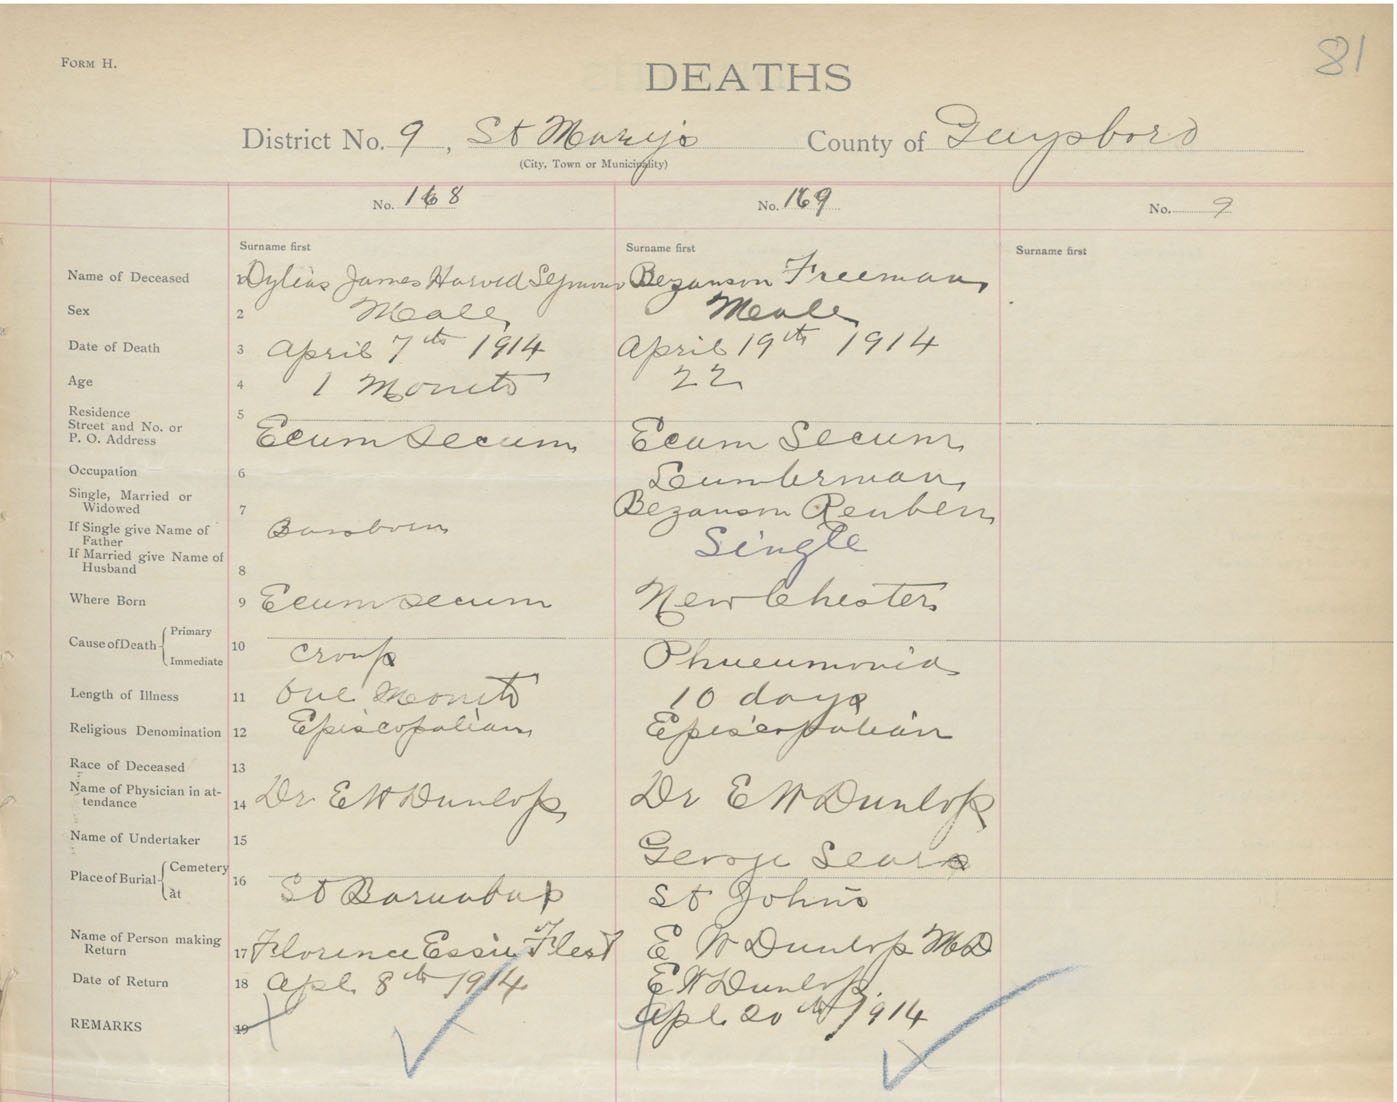 81
FORM H.
DEATHS
District No. 9, St Mary's County of Guysboro
(City, Town or Municipality)
No. 168 No. 169 No. 9
Surname first Surname first Surname first
Name of Deceased James Harvid Seymour Bezanson Freeman
Sex 2 Male Male
Date of Death 3 April 7th 1914 April 19th 1914
Age 4 1 Month 22
Residence 5
Street and No. or
P. O. Address Ecum Secum Ecum Secum
Occupation 6 Lumberman
Single, Married or
Widowed 7 Bezanson Reuben
If Single give Name of
Father Single
If Married give Name of
Husband 8
Where Born 9 Ecum Secum New Chester
Cause of Death Primary 10
Immediate croup Phneumonia
Length of Illness 11 One Month 10 days
Religious Denomination 12 Episcopalian Episcopalian
Race of Deceased 13
Name of Physician in at-
tendance 14 Dr E W Dunlop Dr E W Dunlop
Name of Undertaker 15 George Sears
Place of Burial Cemetery 16
At St Barnabas St John's
Name of Person making
Return 17 Florence Essie E W Dunlop MD
Date of Return 18 Apl 8th 1914 E W Dunlop
REMARKS 19 Apl 20th 1914